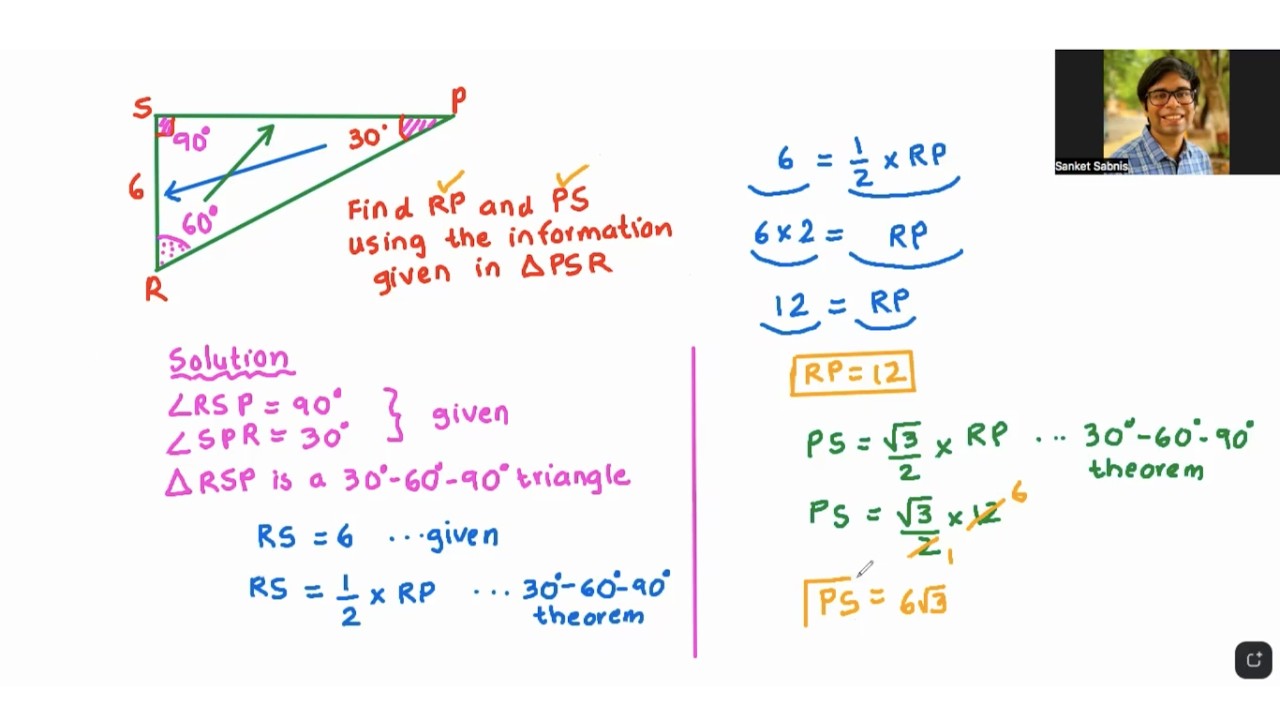 S
P
90°
30°
6
60°
R
Find RP and PS
using the information
given in △PSR
Solution
∠RSP = 90°
∠SPR = 30°
} given
△RSP is a 30°-60°-90° triangle
RS = 6 ...given
RS = 1/2 × RP ... 30°-60°-90°
theorem
6 = 1/2 × RP
6 × 2 = RP
12 = RP
RP = 12
PS = √3/2 × RP ... 30°-60°-90°
theorem
PS = √3/2 × 12 6
1
PS = 6√3
Sanket Sabnis